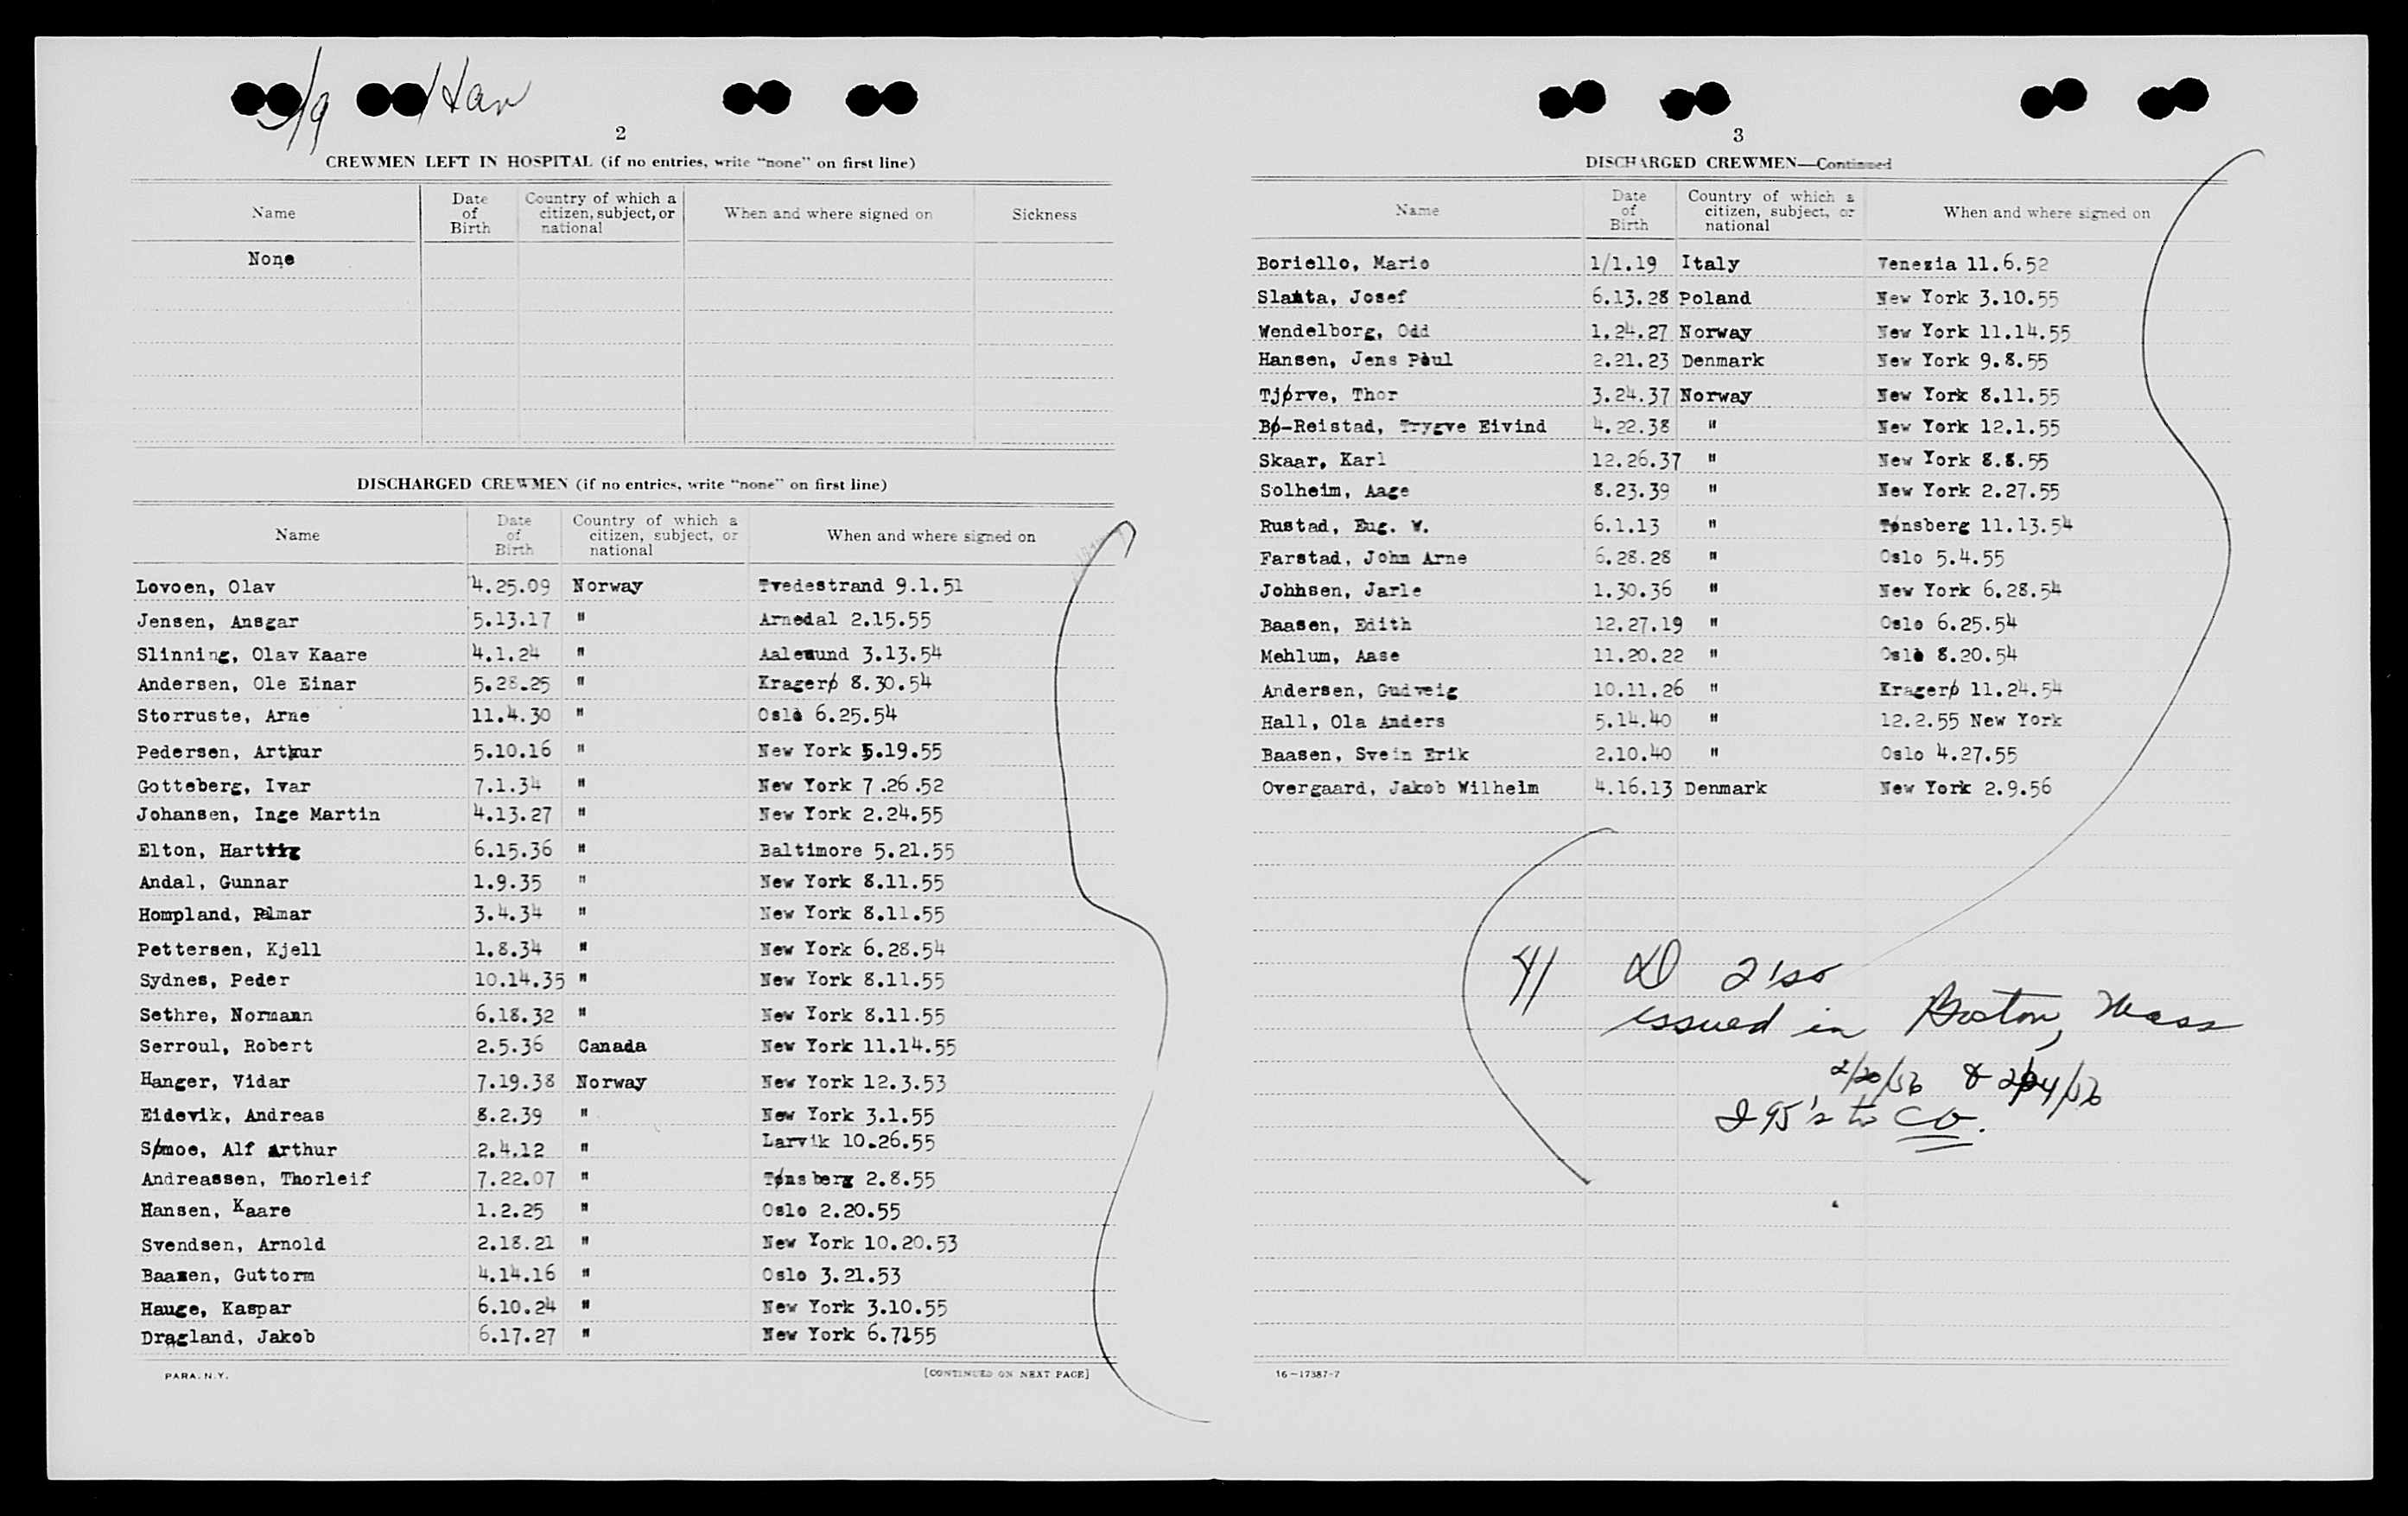 2
CREWMEN LEFT IN HOSPITAL (if no entries, write "none" on first line)
Name Date of Birth Country of which a citizen, subject, or national When and where signed on Sickness
None
DISCHARGED CREWMEN (if no entries, write "none" on first line)
Name Date of Birth Country of which a citizen, subject, or national When and where signed on
Lovoen, Olav 4.25.09 Norway Tvedestrand 9.1.51
Jensen, Ansgar 5.13.17 " Arnedal 2.15.55
Slinning, Olav Kaare 4.1.24 " Aalesund 3.13.54
Andersen, Ole Einar 5.28.25 " Kragerø 8.30.54
Storruste, Arne 11.4.30 " Oslo 6.25.54
Pedersen, Arthur 5.10.16 " New York 5.19.55
Gotteberg, Ivar 7.1.34 " New York 7.26.52
Johansen, Inge Martin 4.13.27 " New York 2.24.55
Elton, 6.15.36 " Baltimore 5.21.55
Andal, Gunnar 1.9.35 " New York 8.11.55
Hompland, Palmar 3.4.34 " New York 8.11.55
Pettersen, Kjell 1.8.34 " New York 6.28.54
Sydnes, Peder 10.14.35 " New York 8.11.55
Sethre, Normann 6.18.32 " New York 8.11.55
Serroul, Robert 2.5.36 Canada New York 11.14.55
Hanger, Vidar 7.19.38 Norway New York 12.3.53
Eidevik, Andreas 8.2.39 " New York 3.1.55
Sømoe, Alf Arthur 2.4.12 " Larvik 10.26.55
Andreassen, Thorleif 7.22.07 " Tønsberg 2.8.55
Hansen, Kaare 1.2.25 " Oslo 2.20.55
Svendsen, Arnold 2.18.21 " New York 10.20.53
Baasen, Guttorm 4.14.16 " Oslo 3.21.53
Hauge, Kaspar 6.10.24 " New York 3.10.55
Dragland, Jakob 6.17.27 " New York 6.7155
PARA. N.Y. [CONTINUED ON NEXT PAGE]
3
DISCHARGED CREWMEN—Continued
Name Date of Birth Country of which a citizen, subject, or national When and where signed on
Boriello, Mario 1/1.19 Italy Venezia 11.6.52
Josef 6.13.28 Poland New York 3.10.55
Wendelborg, Odd 1.24.27 Norway New York 11.14.55
Hansen, Jens Paul 2.21.23 Denmark New York 9.8.55
Tjørve, Thor 3.24.37 Norway New York 8.11.55
Bø-Reistad, Trygve Eivind 4.22.38 " New York 12.1.55
Skaar, Karl 12.26.37 " New York 8.8.55
Solheim, Aage 8.23.39 " New York 2.27.55
Rustad, Eug. W. 6.1.13 " Tønsberg 11.13.54
Farstad, John Arne 6.28.28 " Oslo 5.4.55
Johhsen, Jarle 1.30.36 " New York 6.28.54
Baasen, Edith 12.27.19 " Oslo 6.25.54
Mehlum, Aase 11.20.22 " Oslo 8.20.54
Andersen, Gudveig 10.11.26 " Kragerø 11.24.54
Hall, Ola Anders 5.14.40 " 12.2.55 New York
Baasen, Svein Erik 2.10.40 " Oslo 4.27.55
Overgaard, Jakob Wilhelm 4.16.13 Denmark New York 2.9.56
41 D
issued in Boston, Mass
2/20/56 & 2/24/56
I 95's to CO.
16—17387-7